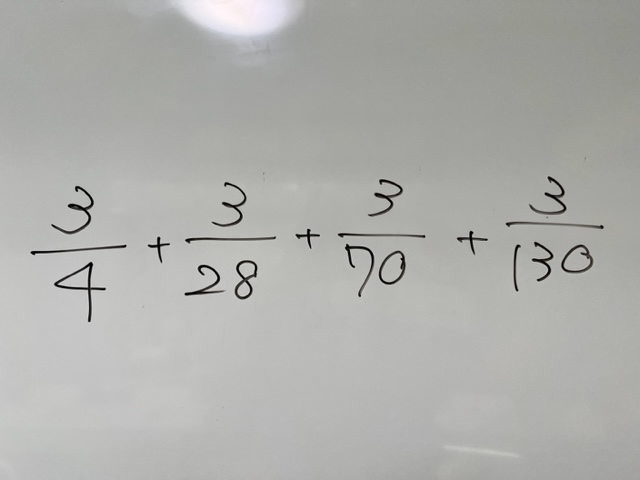 3/4 + 3/28 + 3/70 + 3/130